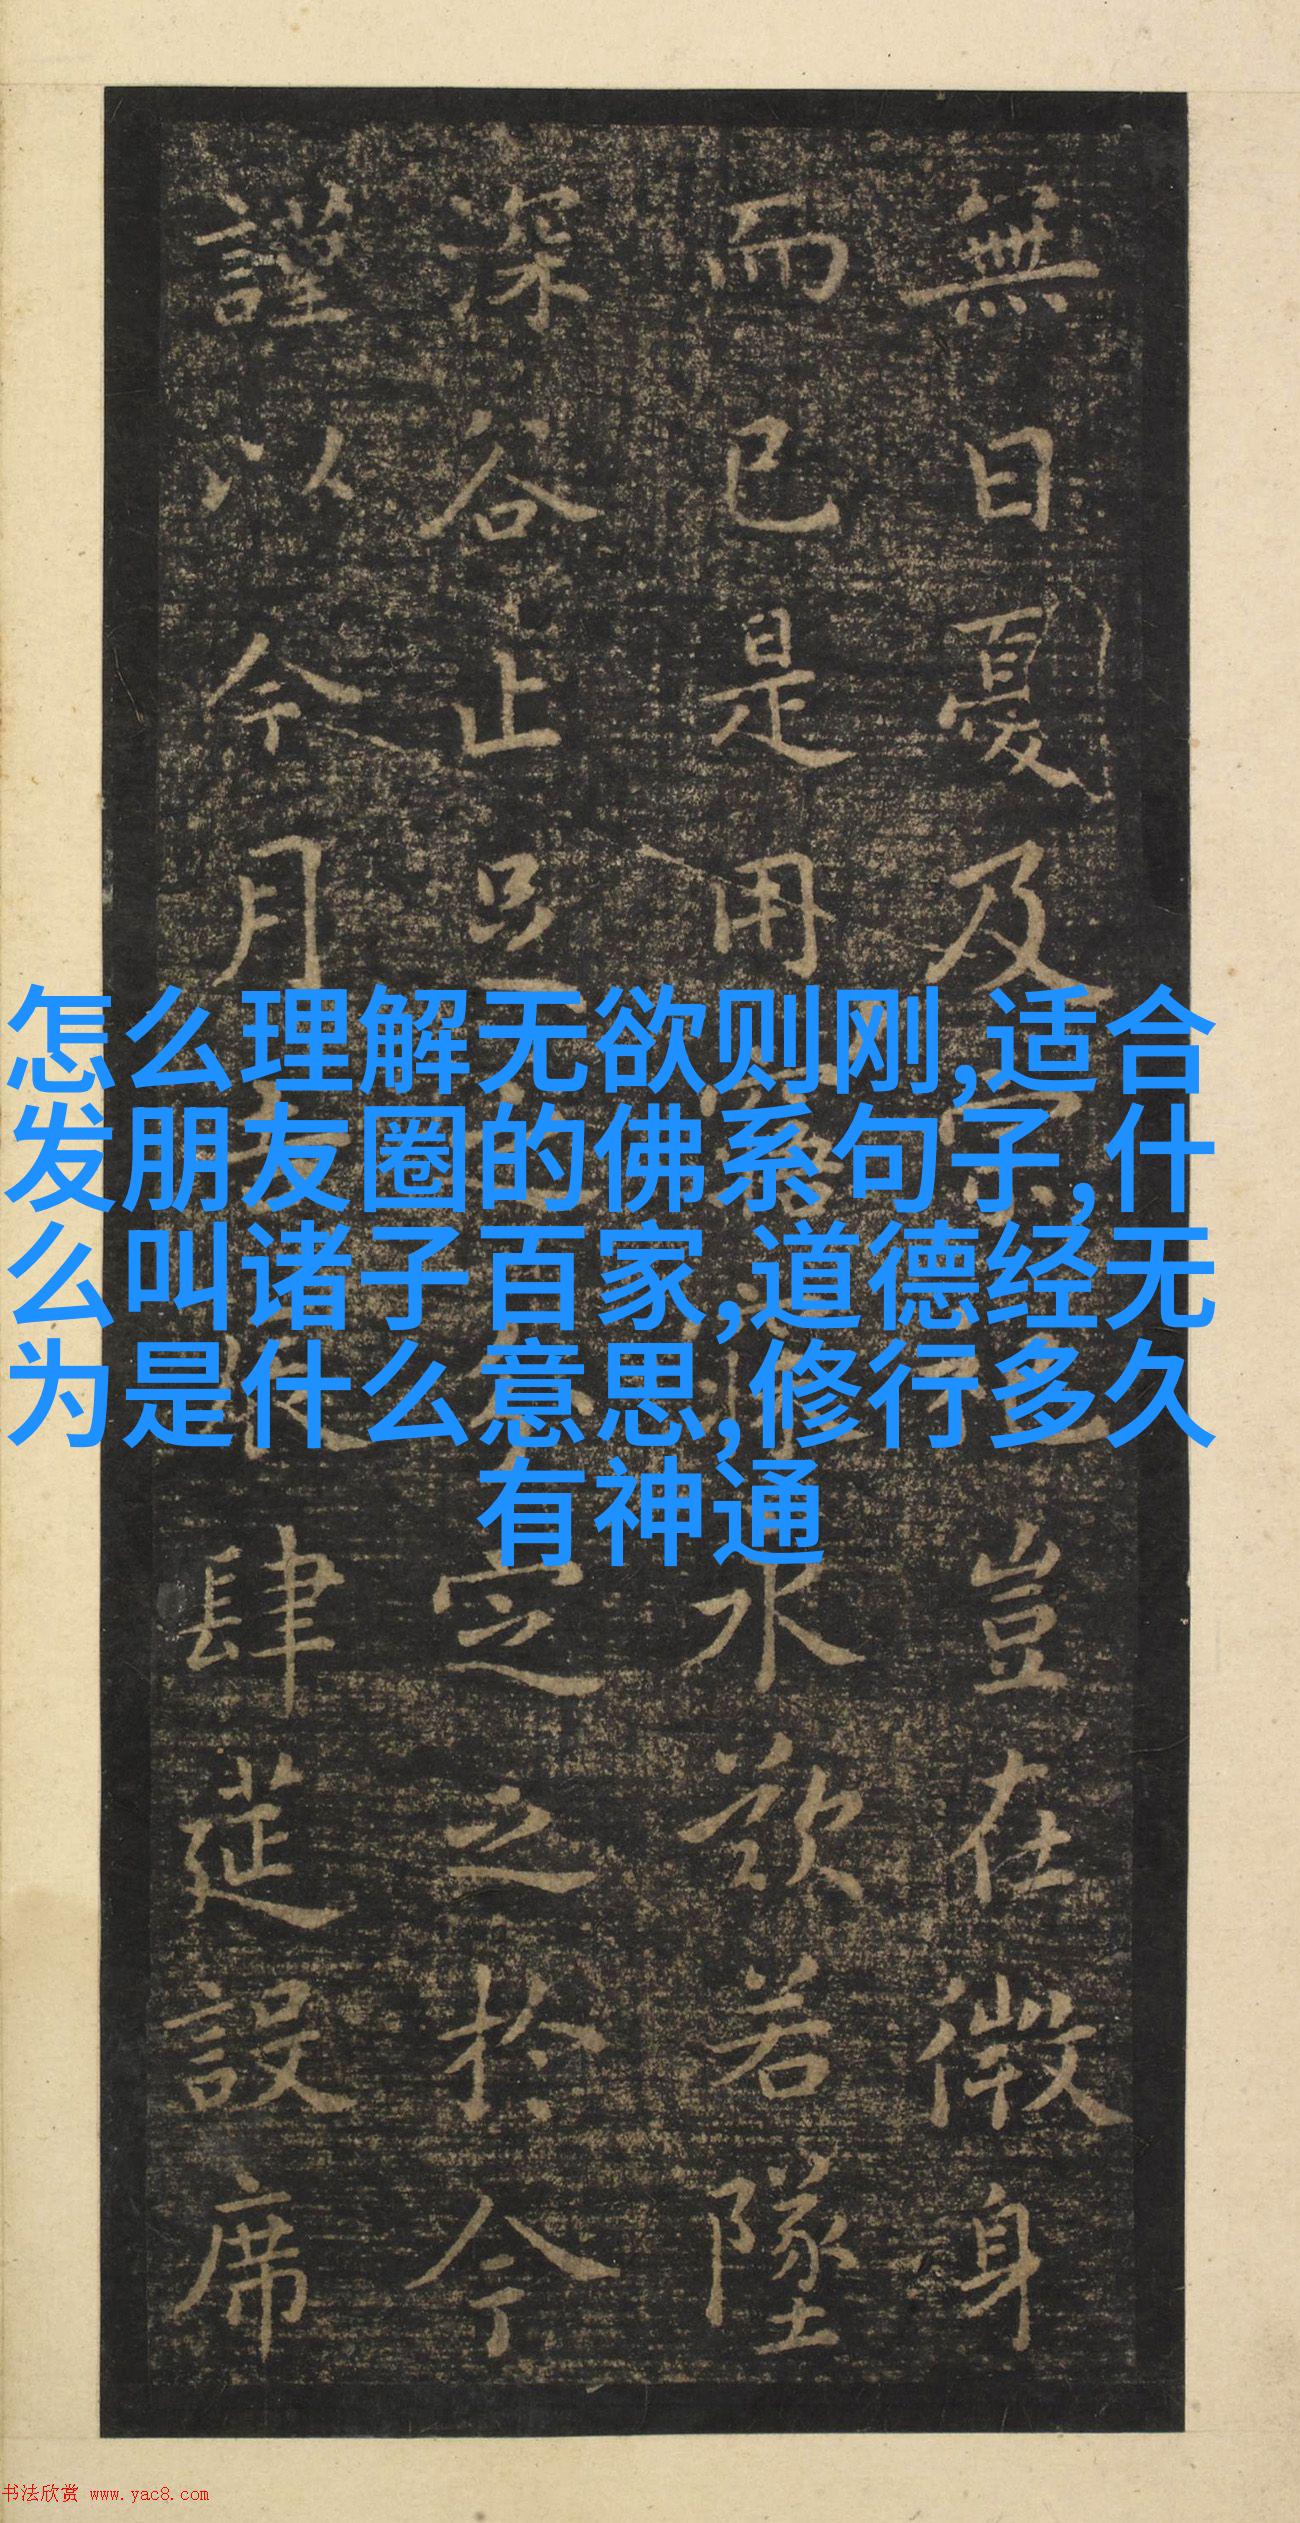 無日憂及豈在微身
而已是用永歎若墜
深谷止足定之於今
謹以今月肆筵設席
怎么理解无欲则刚,适合
发朋友圈的佛系句子,什
么叫诸子百家,道德经无
为是什么意思,修行多久
有神通
书法欣赏 www.yac8.com